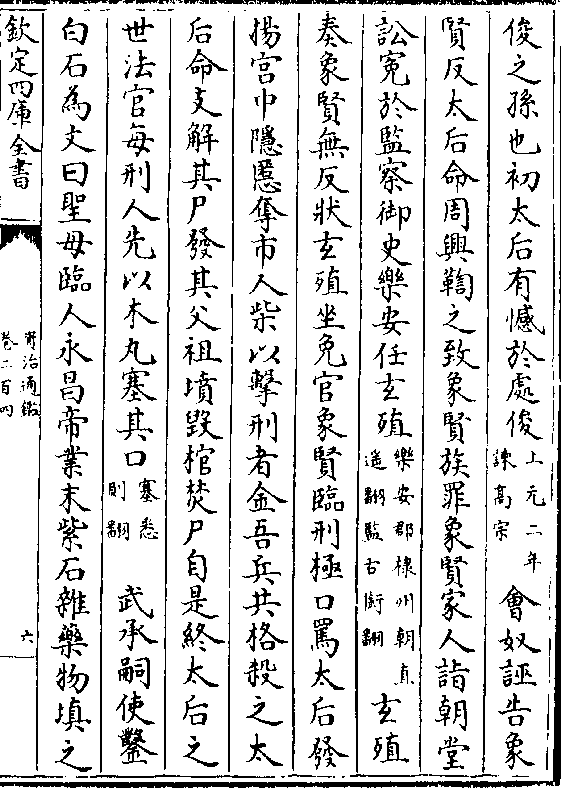 俊之孫也初太后有憾於處俊上元二年諫高宗會奴誣告象
賢反太后命周興鞫之致象賢族罪象賢家人詣朝堂
訟寃於監察御史樂安任玄殖樂安郡棣州朝直遥翻監古銜翻玄殖
奏象賢無反狀玄殖坐免官象賢臨刑極口罵太后發
揚宫中隱慝奪市人柴以擊刑者金吾兵共格殺之太
后命支解其尸發其父祖墳毀棺焚尸自是終太后之
世法官每刑人先以木丸塞其口塞悉則翻武承嗣使鑿
白石為文曰聖母臨人永昌帝業末紫石雜藥物填之
欽定四庫全書
資治通鑑
卷二百四
六